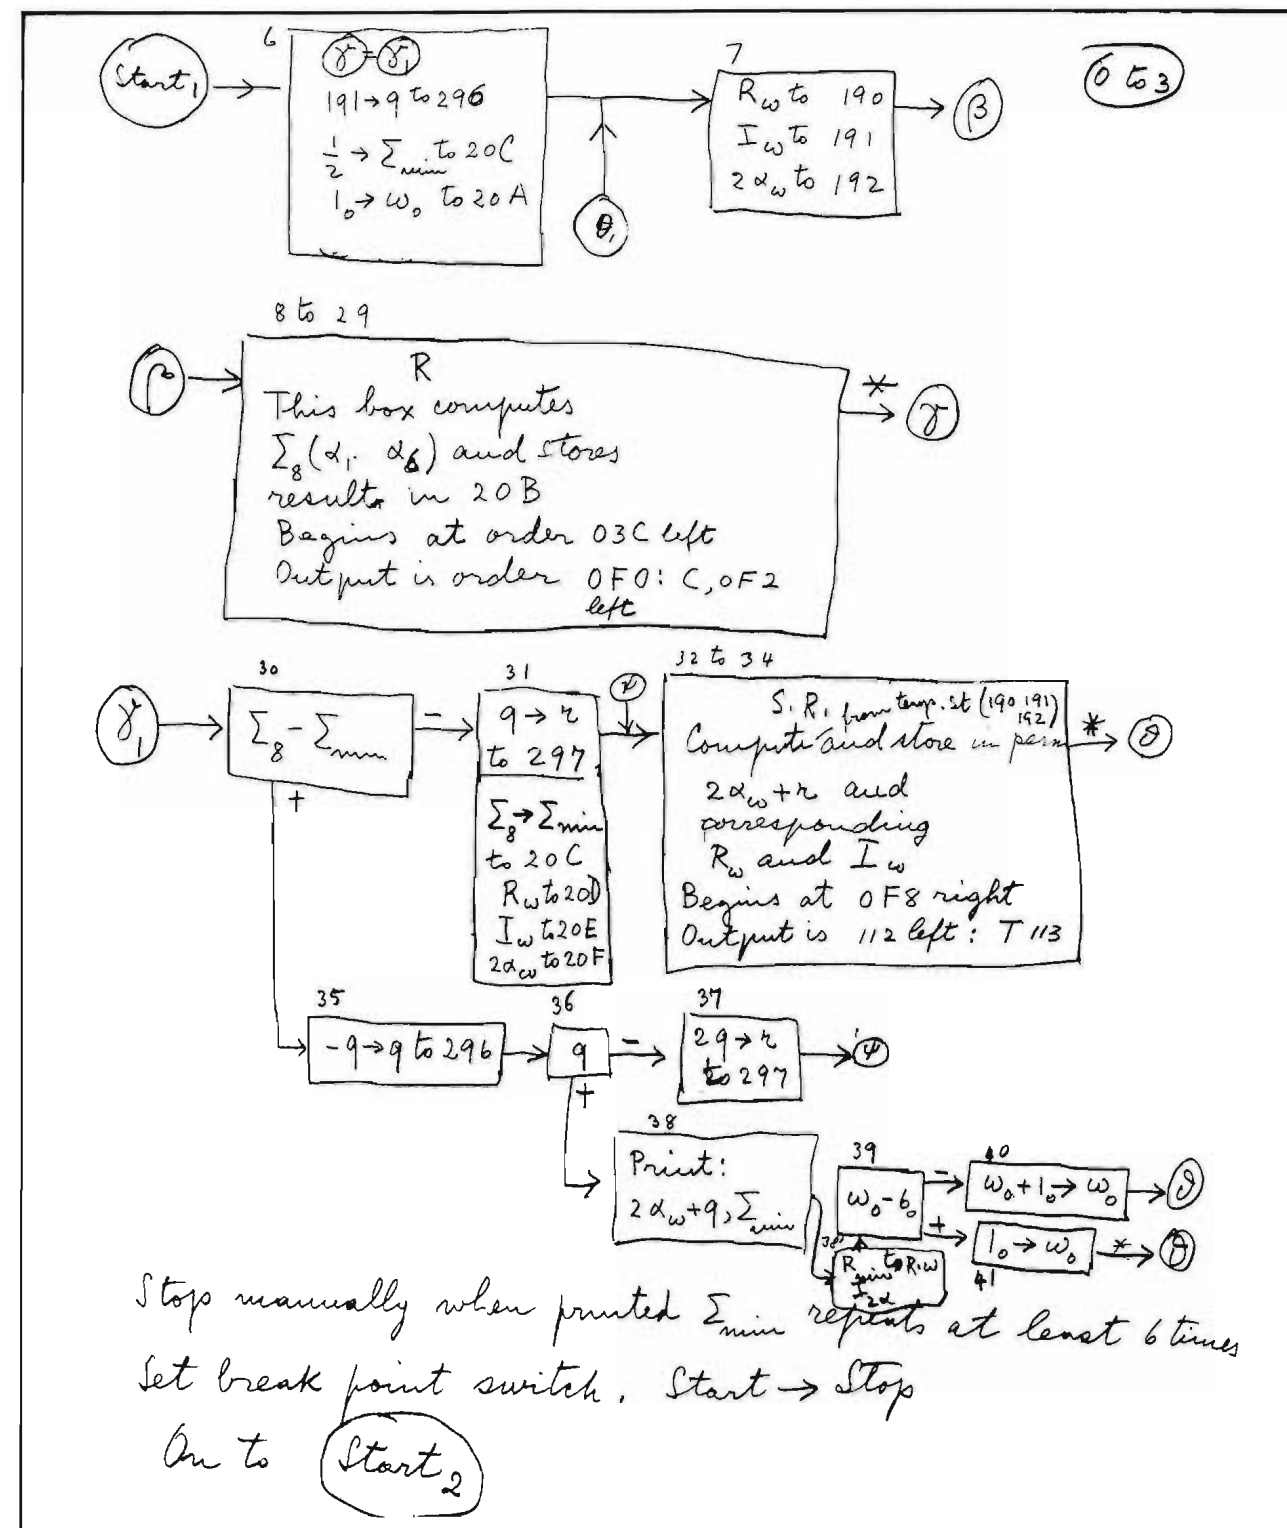 6
Start₁
γ = γ₁
|q| → q to 296
½ → Σmin to 20C
1₀ → ω₀ to 20A
θ₁
7
Rω to 190
Iω to 191
2αω to 192
β
0 to 3
8 to 29
β
R
This box computes
Σ₈(α₁. α₆) and stores
results in 20B
Begins at order 03C left
Output is order 0F0: C, 0F2
left
*
γ
γ₁
30
Σ₈ - Σmin
-
+
31
q → r
to 297
Σ₈ → Σmin
to 20C
Rω to 20D
Iω to 20E
2αω to 20F
ψ
32 to 34
S. R. from temp. st (190 191)
192
Compute and store in perm
2αω + r and
corresponding
Rω and Iω
Begins at 0F8 right
Output is 112 left: T 113
*
θ
35
-q → q to 296
36
q
-
+
37
2q → r
to 297
ψ
38
Print:
2αω + q, Σmin
38'
Rmin to Rω
I
2α
39
ω₀ - 6₀
-
+
40
ω₀ + 1₀ → ω₀
θ
1₀ → ω₀
41
*
Stop manually when printed Σmin repeats at least 6 times
Set break point switch. Start → Stop
On to Start₂